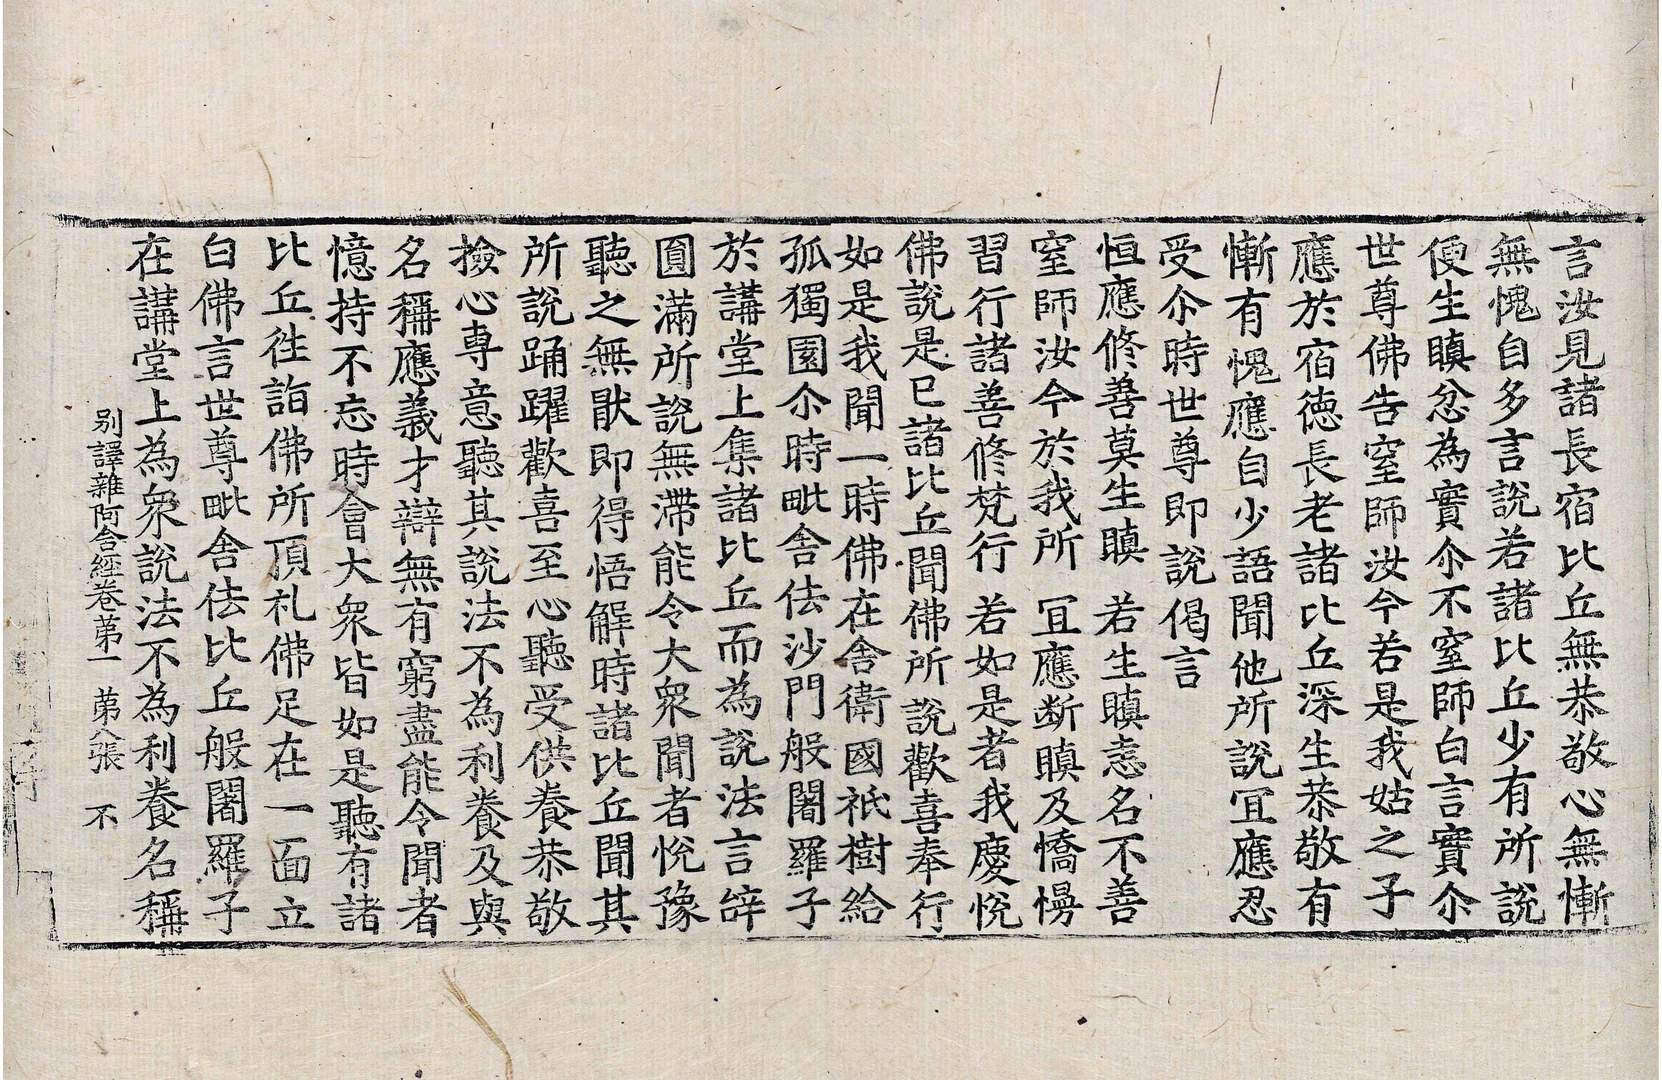 言汝見諸長宿比丘無恭敬心無慚
無愧自多言說若諸比丘少有所說
便生瞋忿為實尒不窒師白言實尒
世尊佛告窒師汝今若是我姑之子
應於宿徳長老諸比丘深生恭敬有
慚有愧應自少語聞他所說冝應忍
受尒時世尊即說偈言
恒應修善莫生瞋 若生瞋恚名不善
窒師汝今於我所 冝應断瞋及憍慢
習行諸善修梵行 若如是者我慶悅
佛說是已諸比丘聞佛所說歡喜奉行
如是我聞一時佛在舍衛國祇樹給
孤獨園尒時毗舍佉沙門般闍羅子
於講堂上集諸比丘而為說法言辝
圓滿所說無滯能令大衆聞者悅豫
聽之無猒即得悟解時諸比丘聞其
所說踊躍歡喜至心聽受供養恭敬
撿心專意聽其說法不為利養及與
名稱應義才辯無有窮盡能令聞者
憶持不忘時會大衆皆如是聽有諸
比丘徃詣佛所頂礼佛足在一面立
白佛言世尊毗舍佉比丘般闍羅子
在講堂上為衆說法不為利養名稱
別譯雜阿含經卷苐一 苐八張 不